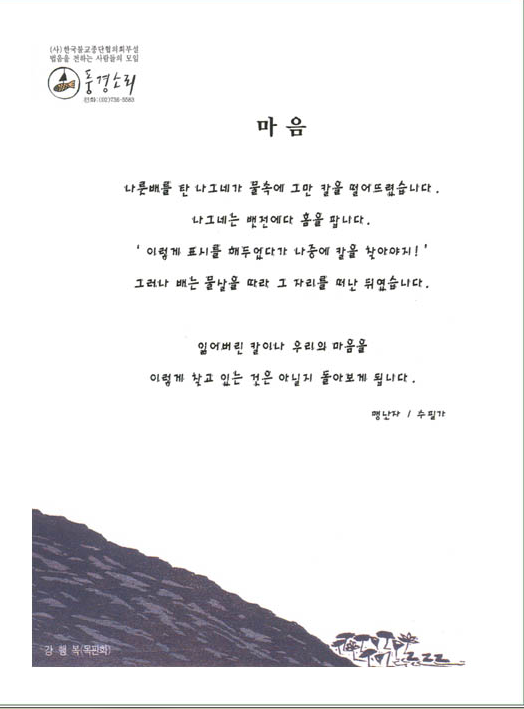 (사)한국불교종단협의회부설
법음을 전하는 사람들의 모임
풍경소리
전화:(02)736-5583
마음
나룻배를 탄 나그네가 물속에 그만 칼을 떨어뜨렸습니다.
나그네는 뱃전에다 홈을 팝니다.
' 이렇게 표시를 해두었다가 나중에 칼을 찾아야지!'
그러나 배는 물살을 따라 그 자리를 떠난 뒤였습니다.
잃어버린 칼이나 우리의 마음을
이렇게 찾고 있는 것은 아닐지 돌아보게 됩니다.
맹난자 / 수필가
강 행 복(목판화)